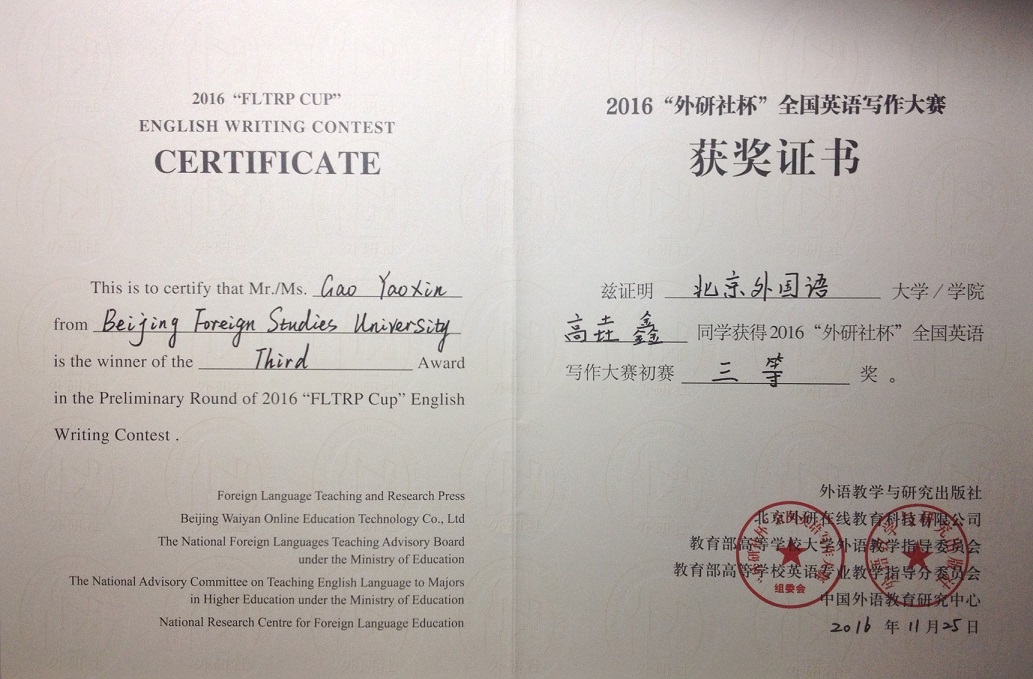 2016 “FLTRP CUP”
ENGLISH WRITING CONTEST
CERTIFICATE
This is to certify that Mr./Ms. Gao Yaoxin
from Beijing Foreign Studies University
is the winner of the Third Award
in the Preliminary Round of 2016 “FLTRP Cup” English
Writing Contest .
Foreign Language Teaching and Research Press
Beijing Waiyan Online Education Technology Co., Ltd
The National Foreign Languages Teaching Advisory Board
under the Ministry of Education
The National Advisory Committee on Teaching English Language to Majors
in Higher Education under the Ministry of Education
National Research Centre for Foreign Language Education
2016“外研社杯”全国英语写作大赛
获奖证书
兹证明 北京外国语 大学/学院
高垚鑫 同学获得2016“外研社杯”全国英语
写作大赛初赛 三等 奖。
外语教学与研究出版社
北京外研在线教育科技有限公司
教育部高等学校大学外语教学指导委员会
教育部高等学校英语专业教学指导分委员会
中国外语教育研究中心
2016 年 11 月 25 日
组委会